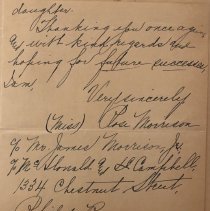 daughter.
Thanking you once again,
& with kind regards and
hoping for future successes,
I am,
Very sincerely
(Miss) Rose Morrison
c/o Mr. James Morrison, Jr.
c/o McDonald & Campbell,
1334 Chestnut Street,